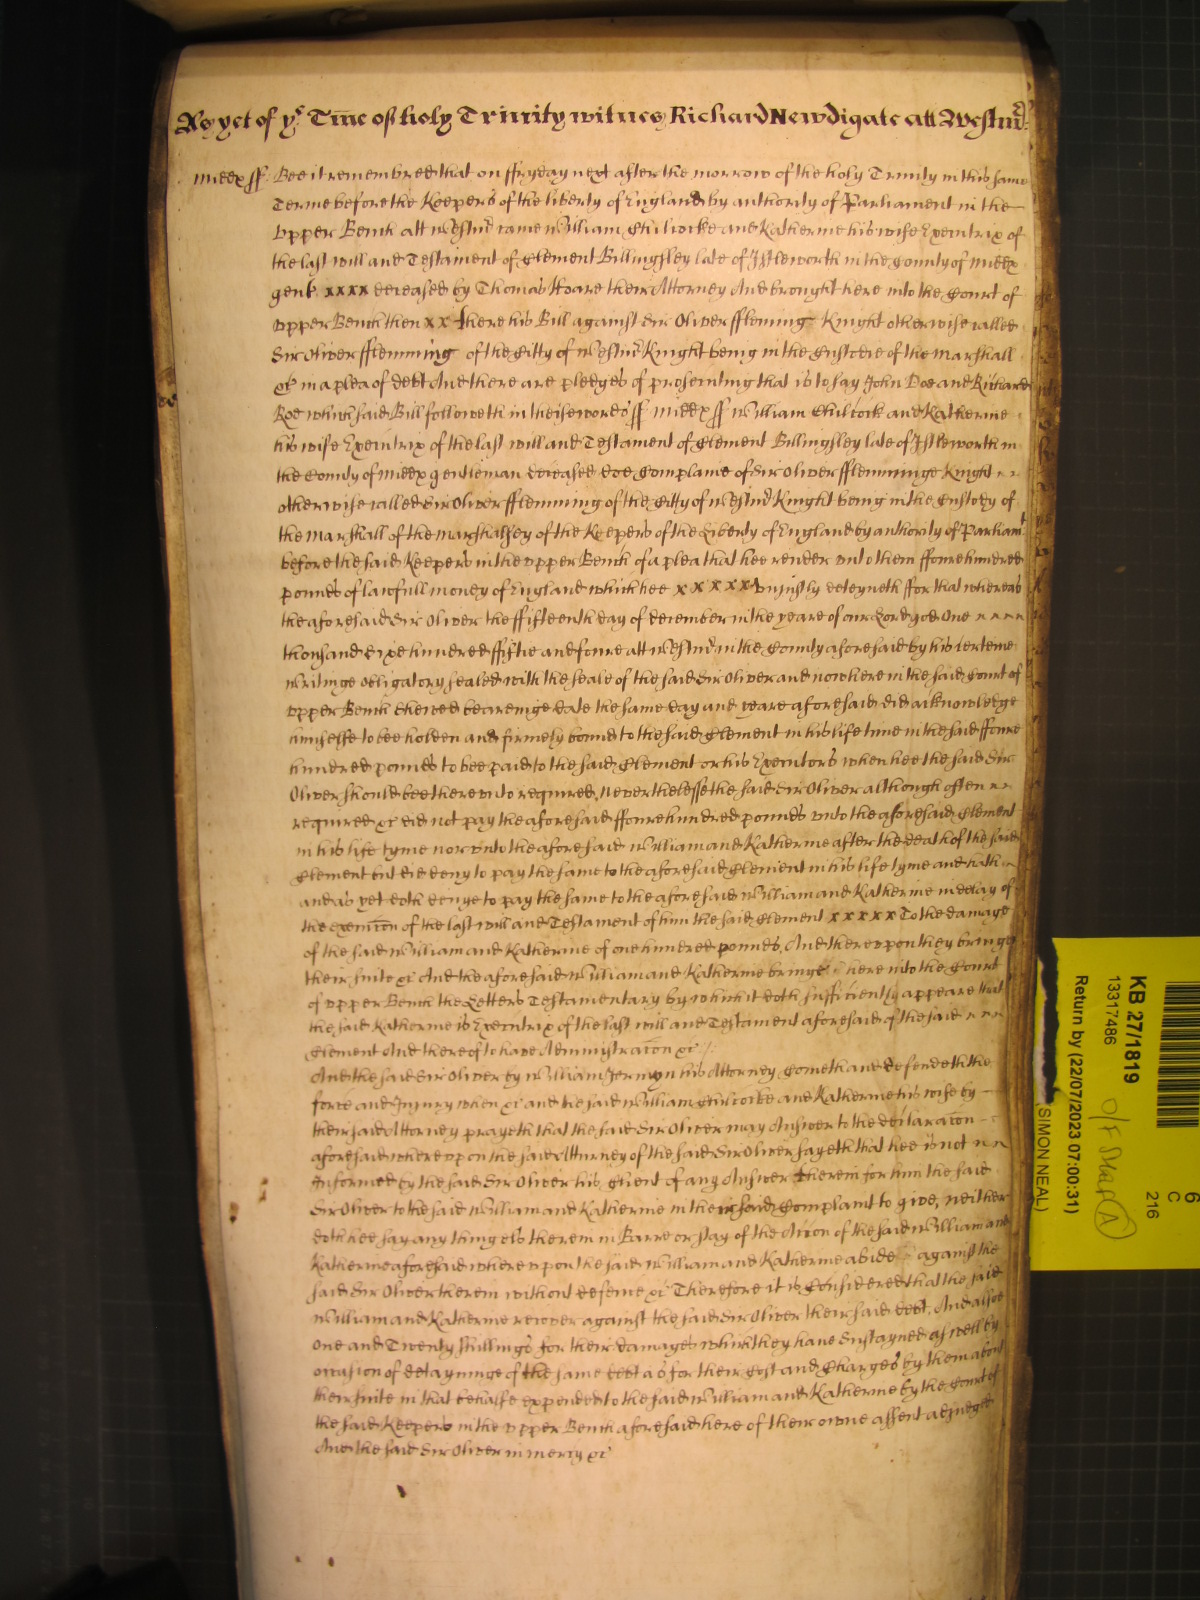 As yet of yᵉ Tm̄e of holy Trinity witnes Richard Newdigate att Westmr̄
Middx ss Bee it remembred that on ffryday next after the morrow of the holy Trinity in this same
Terme before the Keepers of the liberty of England by authority of Parliament in the
vpper Bench att Westmr̄ came William Chilcocke and Katherine his wife Executrix of
the last will and Testament of Clement Billingsley late of Istleworth in the County of Middx
gent xxxx deceased by Thomas Hoare their Attorney And brought here into the Court of
vpper Bench then xx there his Bill against Sir Oliver fflemming Knight otherwise called
Sir Oliver fflemming of the Citty of Westmr̄ Knight being in the Custodie of the Marshall
&c in a plea of debt And there are pledges of prosecuting that is to say John Doe and Richard
Roe which said Bill followeth in theise words ss Middx ss William Chilcock and Katherine
his wife Executrix of the last will and Testament of Clement Billingsley late of Istleworth in
the County of Middx gentleman deceased doe Complaine of Sir Oliver fflemminge Knight
otherwise called Sir Oliver fflemming of the Citty of Westmr̄ Knight being in the Custody of
the Marshall of the Marshalsey of the Keepers of the Liberty of England by authority of Parliamt
before the said Keepers in the vpper Bench of a plea that hee render vnto them ffoure hundred
pounds of lawfull money of England which hee xxxxx vniustly deteyneth ffor that whereas
the aforesaid Sir Oliver the fifteenth day of december in the yeare of our Lord god One
thousand Sixe hundred ffiftie and foure att Westmr̄ in the County aforesaid by his certeine
Writinge obligatory sealed with the seale of the said Sir Oliver and now here in the said Court of
vpper Bench shewed beareinge date the same day and yeare aforesaid did acknowledge
himselfe to bee holden and firmely bound to the said Clement in his life time in the said ffoure
hundred pounds to bee paid to the said Clement or his Executors when hee the said Sir
Oliver should bee therevnto required, neverthelesse the said Sir Oliver although often
required &c did not pay the aforesaid ffoure hundred pounds vnto the aforesaid Clement
in his life tyme nor vnto the aforesaid William and Katherine after the death of the said
Clement but did deny to pay the same to the aforesaid Clement in his life tyme and hath
and as yet doth denye to pay the same to the aforesaid William and Katherine in delay of
the execuc̄on of the last will and Testament of him the said Clement xxxxx To the damage
of the said William and Katherine of one hundred pounds, And therevpon they bringe
their suite &c And the aforesaid William and Katherine bringe here into the Court
of vpper Bench the Letters Testamentary by which it doth sufficiently appeare that
the said Katherine is Executrix of the last will and Testament aforesaid of the said
Clement And thereof to have Administrac̄on &c /.
And the said Sir Oliver by William Jermyn his Attorney Cometh and defendeth the
force and Iniury when &c and the said William Chilcocke and Katherine his wife by
their said Attorney prayeth that the said Sir Oliver may Answer to the declarac̄on
aforesaid wherevpon the said Atturney of the said Sir Oliver sayeth that hee is not
Informed by the said Sir Oliver his Client of any Answer therein for him the said
Sir Oliver to the said William and Katherine in their said Complaint to give, neither
doth hee say any thing els therein in Barre or stay of the Acc̄on of the said William and
Katherine aforesaid wherevpon the said William and Katherine abide against the
said Sir Oliver therein without defence &c Therefore it is Considered that the said
William and Katherine recover against the said Sir Oliver their said debt, And alsoe
one and Twenty shillings for their damages which they have Sustayned as well by
occasion of detayninge of the same debt as for their Cost and Charges by them about
their suite in that behalfe expended to the said William and Katherine by the Court of
the said Keepers in the vpper Bench aforesaid here of their owne assent adiudged
And the said Sir Oliver in mercy &c
KB 27/1819
13317486
Return by (22/07/2023 07:00:31)
SIMON NEAL)
6
C
216